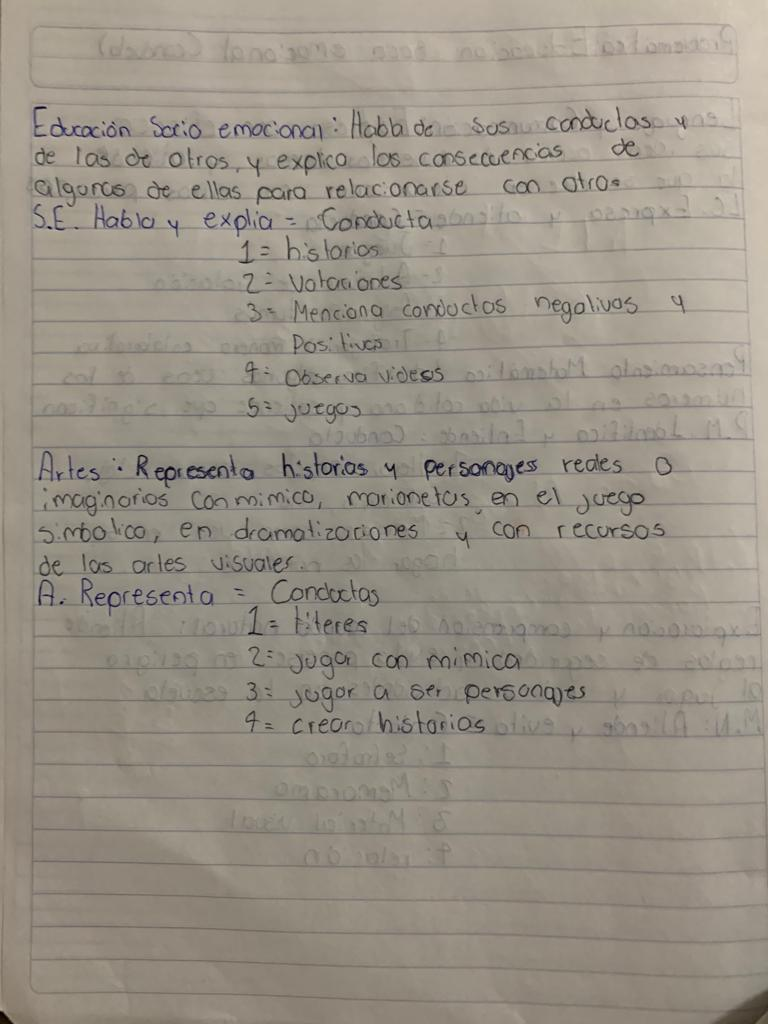 Educación Socio emocional: Habla de sus conductas y
de las de otros, y explica las consecuencias de
algunas de ellas para relacionarse con otros
S.E. Habla y explia = Conducta
1 = historias
2 = Votaciones
3 = Menciona conductas negativas y
Positivas
4 = Observa videos
5 = juegos
Artes: Representa historias y personajes reales o
imaginarios con mimica, marionetas, en el juego
simbolico, en dramatizaciones y con recursos
de las artes visuales.
A. Representa = Conductas
1 = titeres
2 = jugar con mimica
3 = jugar a ser personajes
4 = crear historias